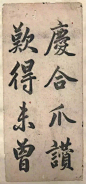 慶合爪讚
歎得未曾